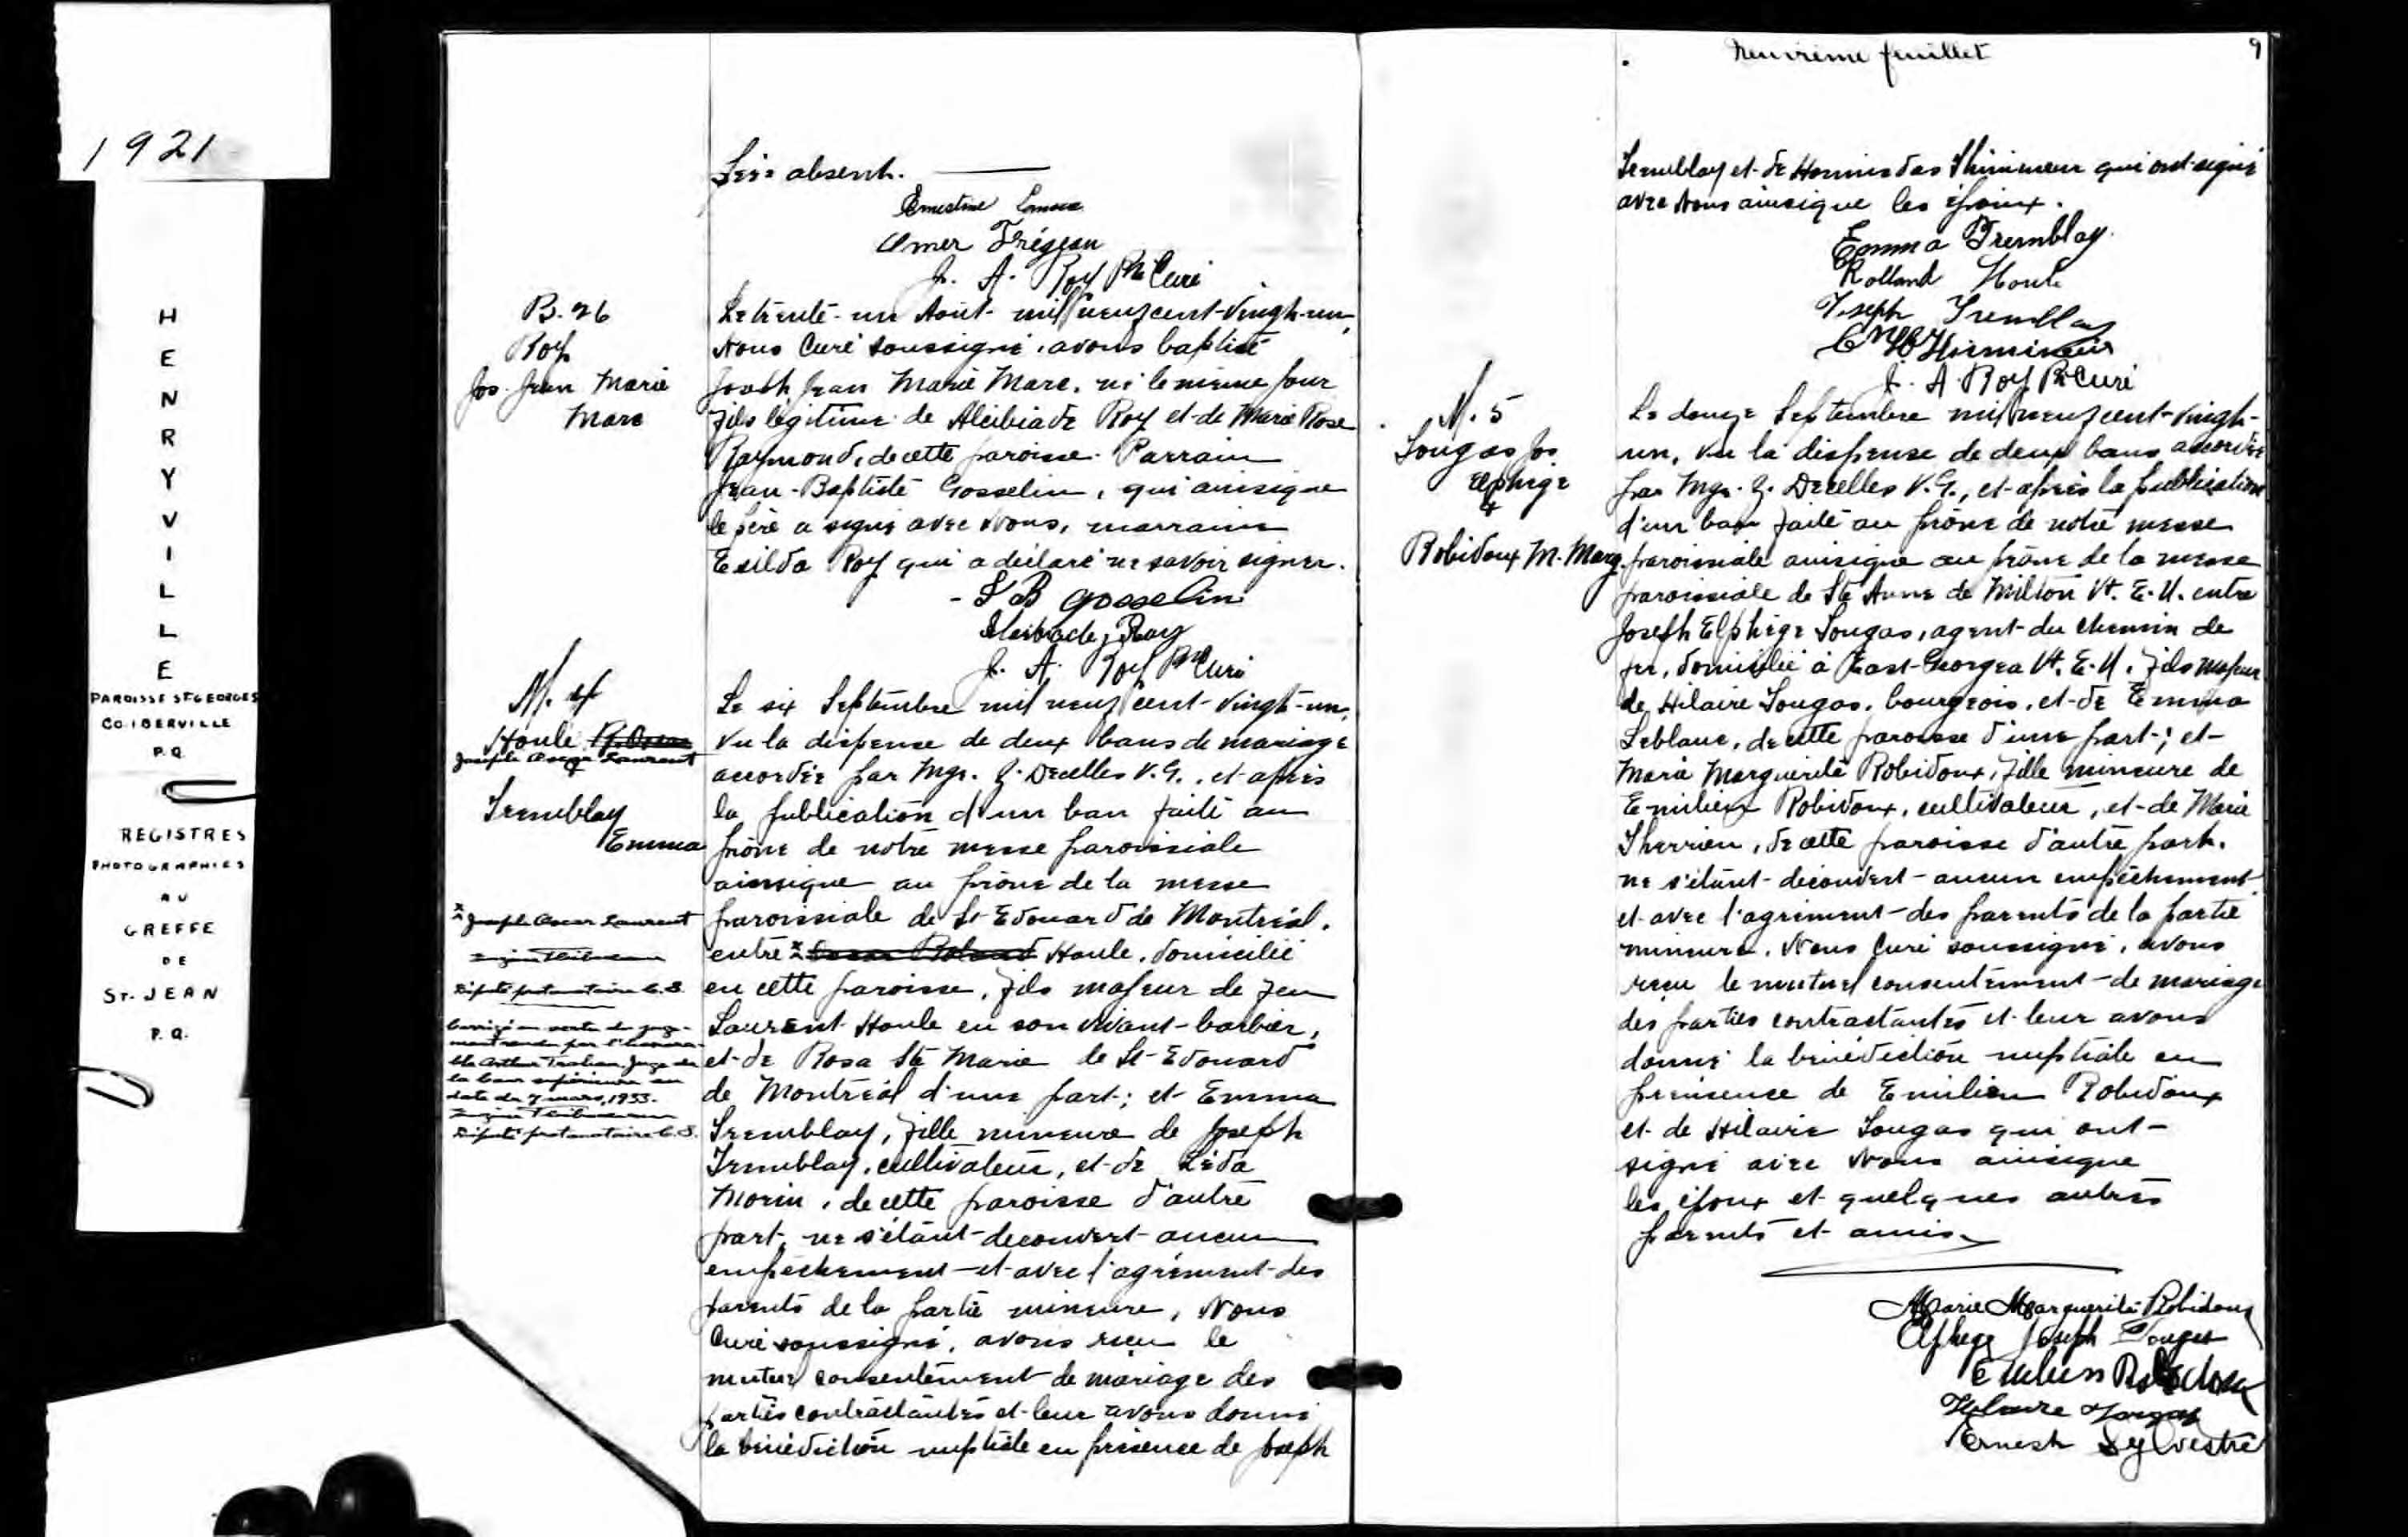 1921
HENRYVILLE
PAROISSE ST GEORGES
CO. IBERVILLE
P.Q.
REGISTRES
PHOTOGRAPHIES
AU
GREFFE
DE
ST. JEAN
P.Q.
père absent.
Ernestine
Omer Trégeau
J. A. Roy Ptre Curé
B. 26
Roy
Jos. Jean Marie
Marc
Le trente-un Août mil neuf cent-vingt-un,
Nous Curé soussigné, avons baptisé
Joseph Jean Marie Marc, né le même jour
fils légitime de Alcibiade Roy et de Marie Rose
Raymond, de cette paroisse. Parrain
Jean-Baptiste Gosselin, qui ainsique
le père a signé avec Nous, marraine
Exilda Roy qui a déclaré ne savoir signer.
J B Gosselin
Alcibiade Roy
J. A. Roy Ptre Curé
M. 4
Houle
Joseph Oscar Laurent
&
Tremblay
Emma
x Joseph Oscar Laurent
Député protonotaire C.S.
Corrigé en vertu du juge-
ment rendu par l'honora-
ble Arthur Trahan, Juge de
la Cour supérieure en
date du 7 mars, 1933.
Député protonotaire C.S.
Le six Septembre mil neuf cent-vingt-un,
Vu la dispense de deux bans de mariage
accordée par Mgr. Z. Decelles V.G., et après
la publication d'un ban faite au
prône de notre messe paroissiale
ainsique au prône de la messe
paroissiale de St Edouard de Montréal.
entre x Oscar Roland Houle, domicilié
en cette paroisse, fils majeur de feu
Laurent Houle en son vivant-barbier,
et de Rosa Ste Marie de St-Edouard
de Montréal d'une part; et Emma
Tremblay, fille mineure de Joseph
Tremblay, cultivateur, et de Léda
Morin, de cette paroisse d'autre
part, ne s'étant découvert aucun
empêchement et avec l'agrément des
parents de la partie mineure, Nous
Curé soussigné, avons reçu le
mutuel consentement de mariage des
parties contractantes et leur avons donné
la bénédiction nuptiale en présence de Joseph
Neuvième feuillet
9
Tremblay et de Hormisdas Thimineur qui ont signé
avec Nous ainsique les époux.
Emma Tremblay
Rolland Houle
Joseph Tremblay
J. A. Roy Ptre Curé
M. 5
Sougas Jos
Elphège
&
Robidoux M. Marg.
Le douze Septembre mil neuf cent-vingt-
un, vu la dispense de deux bans accordée
par Mgr. Z. Decelles V.G., et après la publication
d'un ban faite au prône de notre messe
paroissiale ainsique au prône de la messe
paroissiale de Ste Anne de Milton Vt. E.U. entre
Joseph Elphège Sougas, agent du chemin de
fer, domicilié à East-Georgea Vt. E.U. fils majeur
de Hilaire Sougas, bourgeois, et de Emma
Leblanc, de cette paroisse d'une part; et
Marie Marguerite Robidoux, fille mineure de
Emilien Robidoux, cultivateur, et de Marie
Therrien, de cette paroisse d'autre part.
ne s'étant découvert aucun empêchement
et avec l'agrément des parents de la partie
mineure, Nous Curé soussigné, avons
reçu le mutuel consentement de mariage
des parties contractantes et leur avons
donné la bénédiction nuptiale en
présence de Emilien Robidoux
et de Hilaire Sougas qui ont
signé avec Nous ainsique
les époux et quelques autres
parents et amis.
Marie Marguerite Robidoux
Elphege Joseph Sougas
Emilien Robidoux
Hilaire Sougas
Ernest Sylvestre